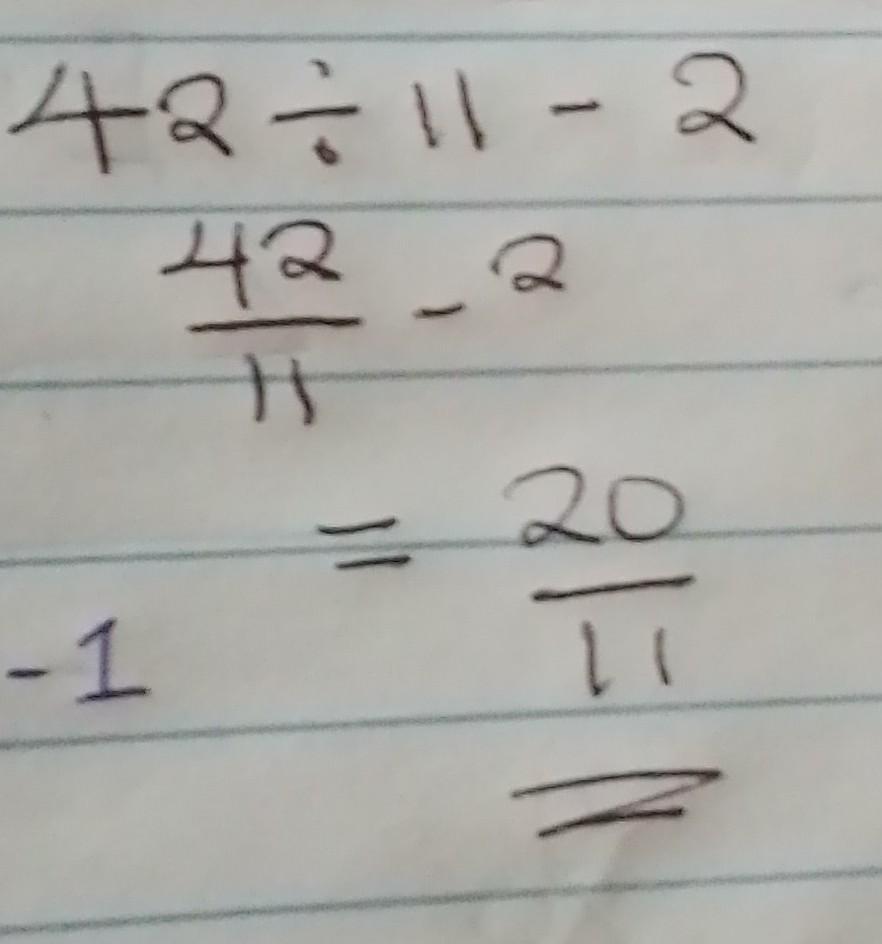 42 ÷ 11 - 2
42/11 - 2
= 20/11
-1